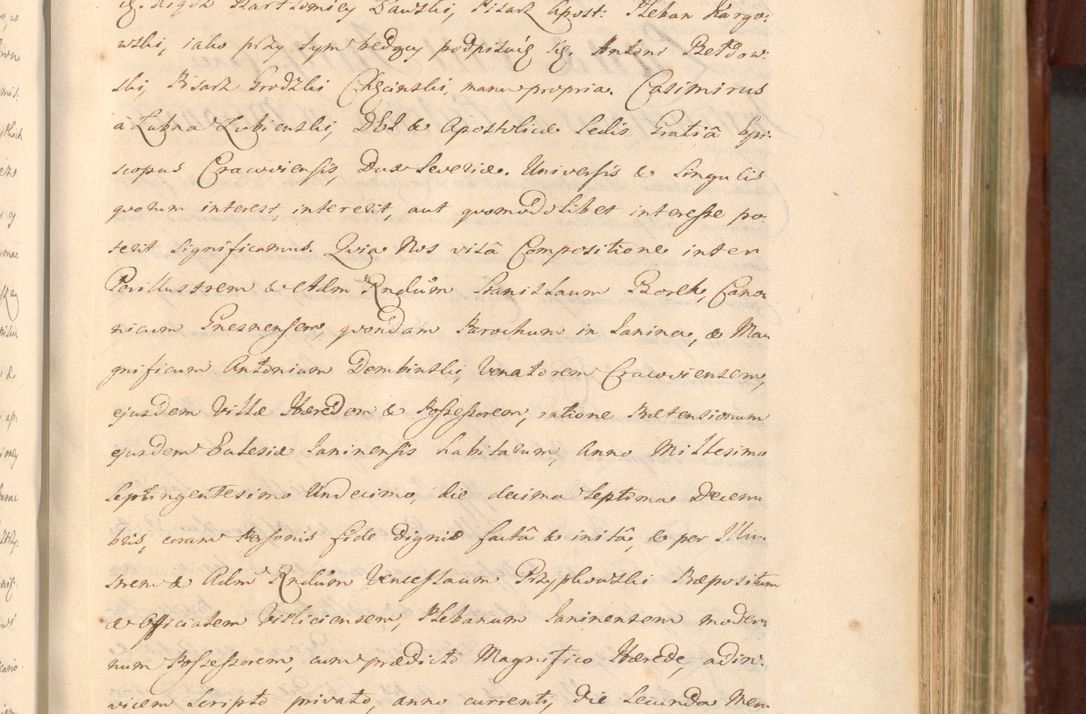 X. Bartłomiey Dawski, Pisarz Apost: Pleban Kargo-
wski, iako przy tym będący podpisuię się. Antoni Bełdow-
ski, Pisarz Grodzki Chęcinski, manu propria. Casimirus
a Łubna Łubienski, DEI & Apostolicæ Sedis Gratiâ Epi-
scopus Cracoviensis, Dux Severiæ. Universis & Singulis
quorum interest, intererit, aut quomodolibet interesse po-
terit significamus. Quia Nos visâ Compositione inter
Perillustrem & Adm Rndum Stanislaum Borek, Cano-
nicum Gnesnensem, quondam Parochum in Janina, & Ma-
gnificum Antonium Dembinski, Venatorem Cracoviensem,
ejusdem Villæ Hæredem & Possessorem, ratione Prætensionum
ejusdem Eclesiæ Janinensis habitarum, Anno Millesimo
Septingentesimo Undecimo, die decima Septima Decem-
bris, coram Personis fide dignis factâ & initâ, & per Illu-
strem & Adm Rndum Venceslaum Przypkowski Præpositum
& Officialem Visliciensem, Plebanum Janinensem moder-
num Possessorem, cum prædicto Magnifico Hærede, adin-
vicem Scripto privato, anno currenti, die Secunda Men-